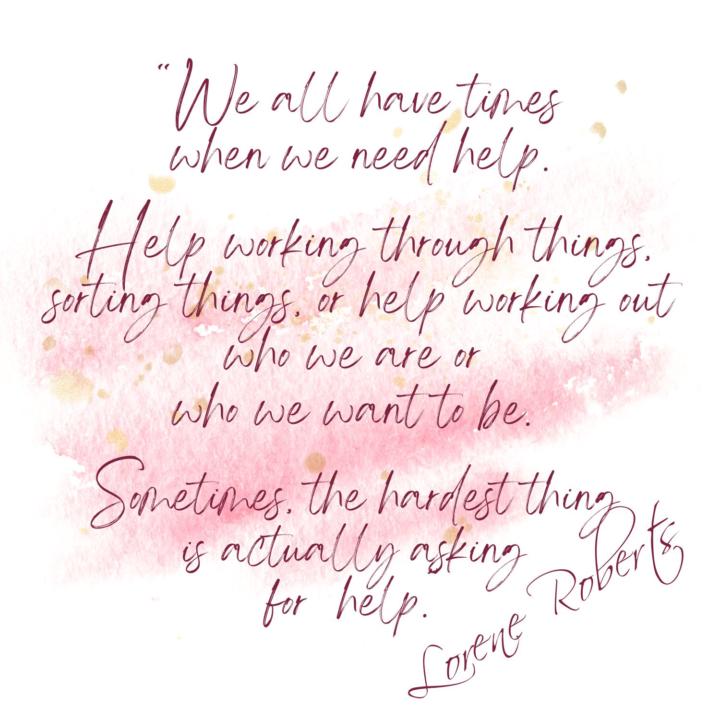 “We all have times
when we need help.
Help working through things,
sorting things, or help working out
who we are or
who we want to be.
Sometimes, the hardest thing
is actually asking
for help.
Lorene Roberts